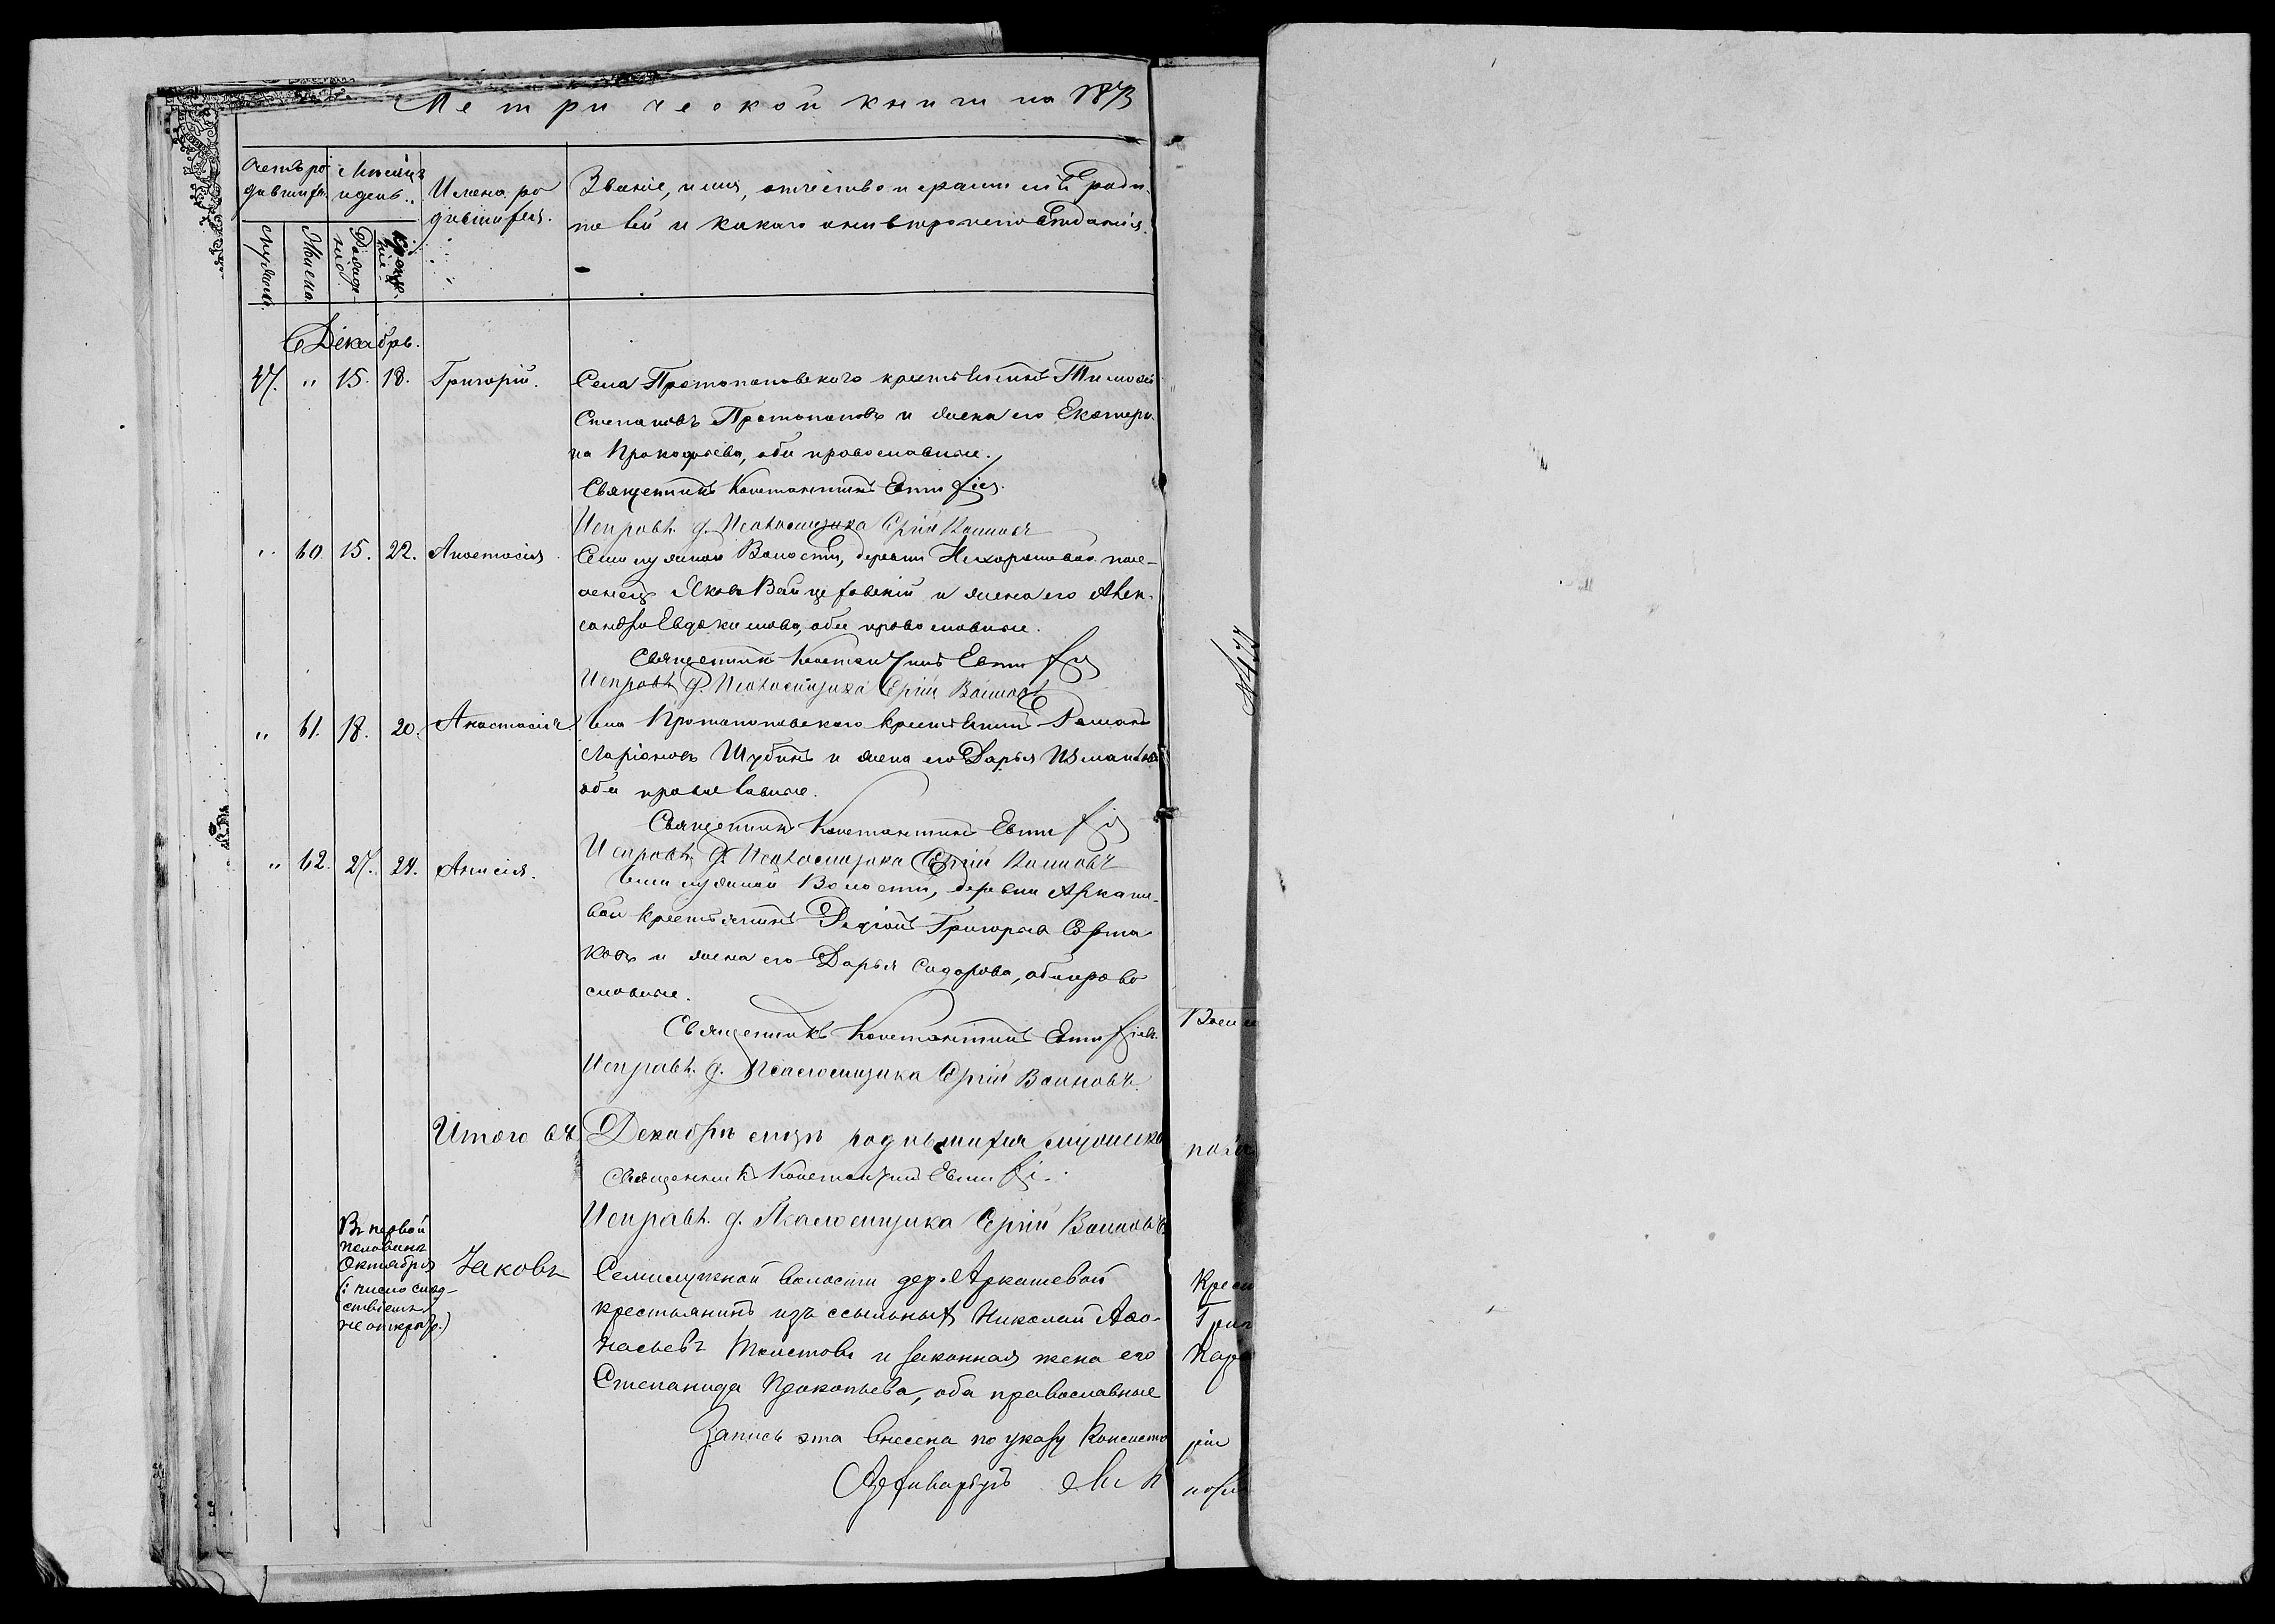 Метрической книги на 1873
Счетъ ро
дившихся.
Мѣсяцъ
и день.
Имена ро
дившихся.
Званіе, имя, отчество и фамилія роди
телей и какого они вѣроисповѣданія.
Мужеска.
Женска.
Рожде
нія
Креще
нія
Декабрь.
47. " 15. 18. Григорій. Села Протопоповского крестьянинъ Тимоѳей
Степановъ Протопоповъ и жена его Екатери
на Прокофьева, оба православные.
Священникъ Константинъ Евтифіев
Исправл. д. Псаломщика Сергій Воиновъ
" 60. 15. 22. Анастасія. Семилужной Волости, деревни посе-
ленецъ Яковъ и жена его Алек
сандра Евдокимова, оба православные.
Священникъ Константинъ Евтифіев
Исправл. д. Псаломщика Сергій Воиновъ
" 61. 18. 20. Анастасія. Села Протопоповского крестьянинъ Романъ
Ларіоновъ Шубинъ и жена его Дарья
оба православные.
Священникъ Константинъ Евтифіев
Исправл. д. Псаломщика Сергій Воиновъ
" 62. 27. 28. Анисія. Семилужной Волости, деревни Аркаше-
вой крестьянинъ Григорьев
ковъ и жена его Дарья Сидорова, оба право
славные.
Священникъ Константинъ Евтифіевъ.
Исправл. д. Псаломщика Сергій Воиновъ.
Итого въ Декабрѣ мцѣ родившихся мужеска
Священникъ Константинъ Евтифіев
Исправл. д. Псаломщика Сергій Воиновъ
Въ первой
половинѣ
Октября
(: число слѣд-
ствіемъ
не откры.)
Іаковъ Семилужной волости дер. Аркашевой
крестьянинъ изъ ссыльныхъ Николай Аѳо-
насьевъ Толстовъ и законная жена его
Степанида Прокопьева, оба православные
Запись эта внесена по указу Консисто
ріи